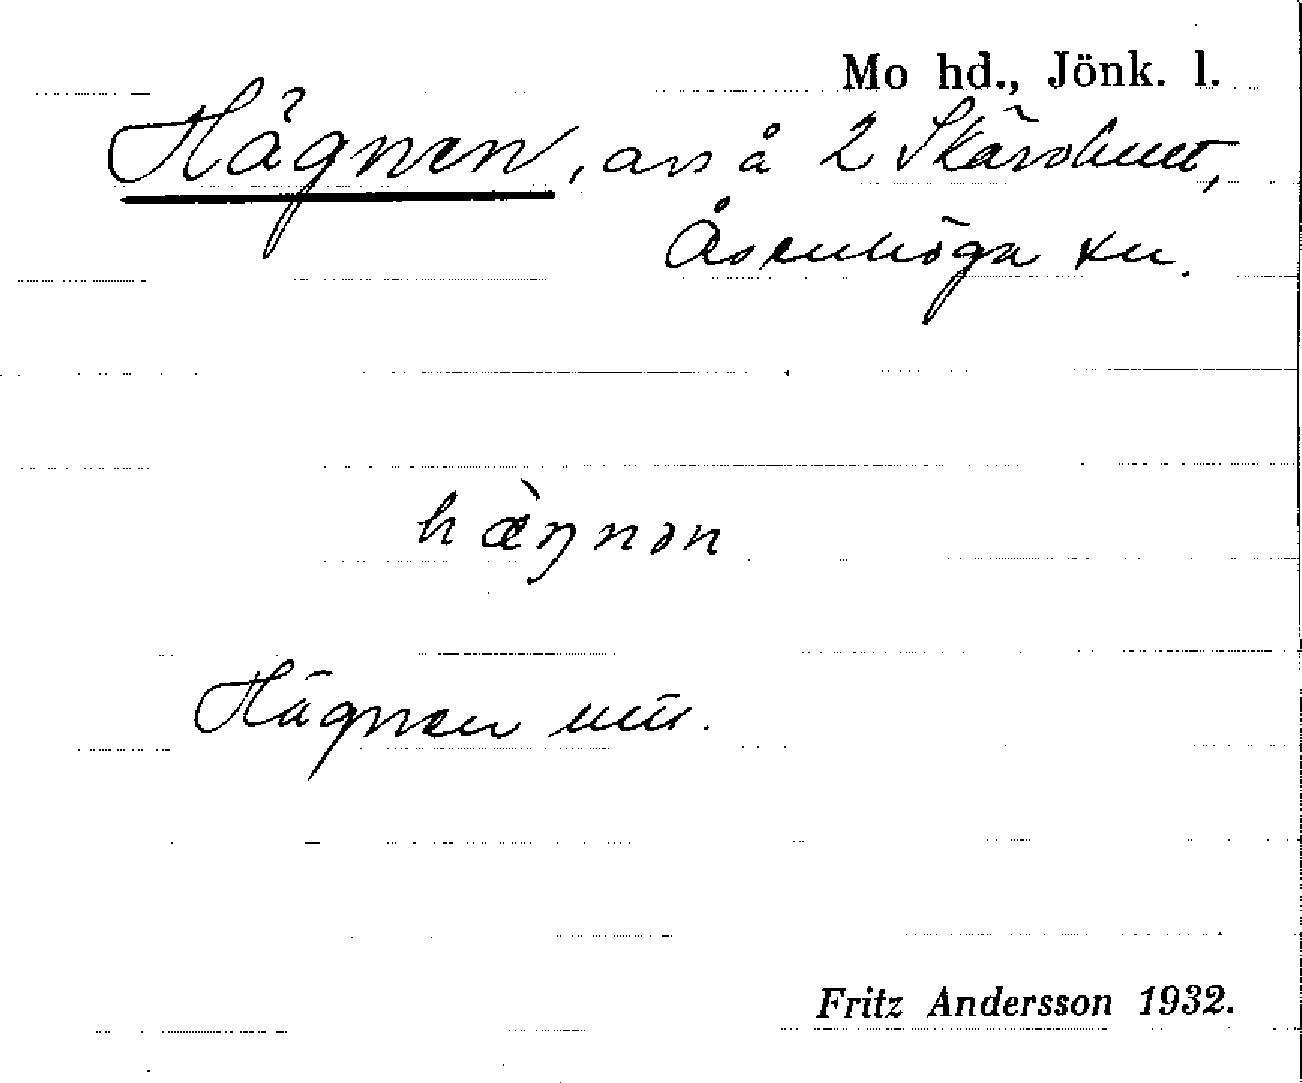 Mo hd., Jönk. l.
Hägnen, avs å 2 Skärvhult,
Åsenhöga sn.
hæ̀ŋnən
Hägnen mis.
Fritz Andersson 1932.